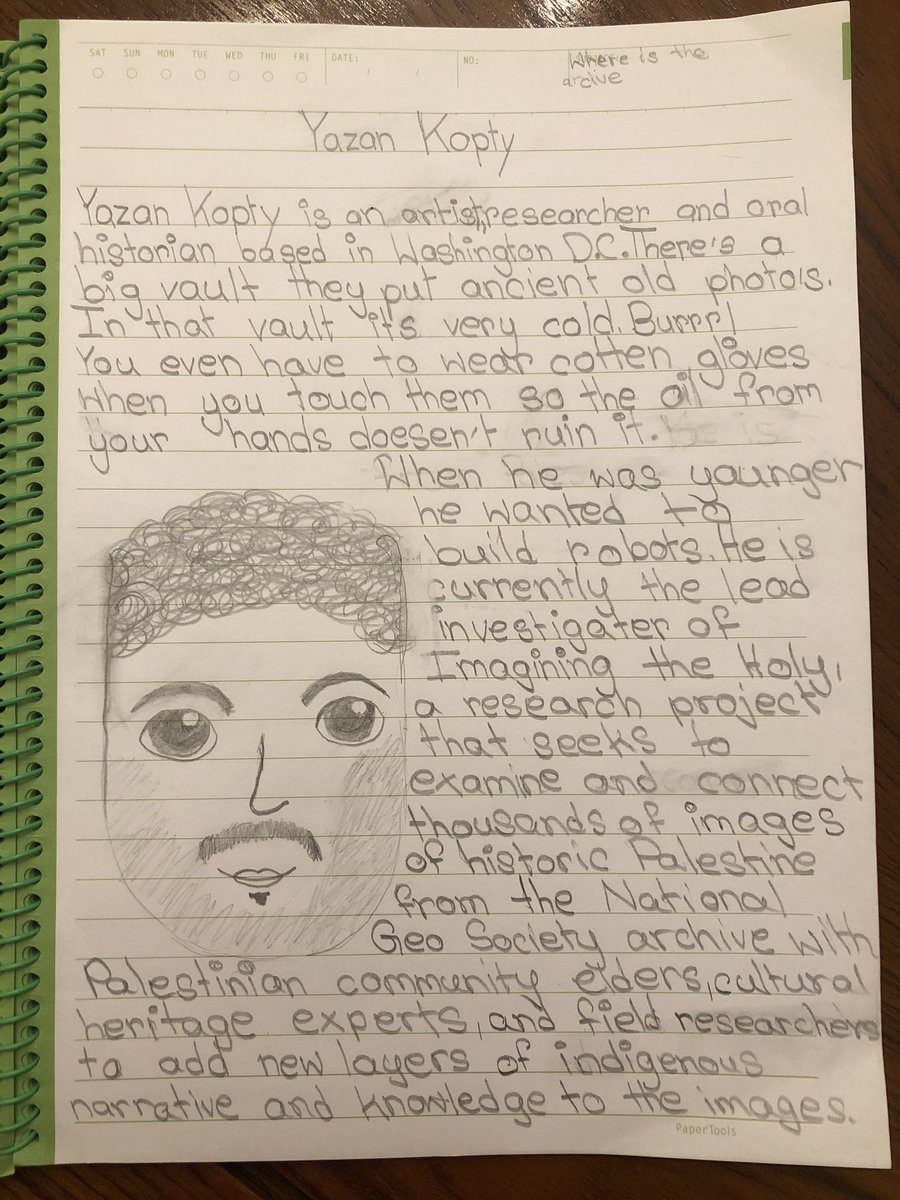 SAT SUN MON TUE WED THU FRI DATE: / / NO: Where is the
arcive
Yazan Kopty
Yazan Kopty is an artist,researcher and oral
historian based in Washington D.C.There's a
big vault they put ancient old photo's.
In that vault it's very cold.Burrr!
You even have to wear cotten gloves
when you touch them so the oil from
your hands doesen't ruin it.
When he was younger
he wanted to
build robots.He is
currently the lead
investigater of
Imagining the Holy,
a research project
that seeks to
examine and connect
thousands of images
of historic Palestine
from the National
Geo Society archive with
Palestinian community elders,cultural
heritage experts,and field researchers
to add new layers of indigenous
narrative and knowledge to the images.
PaperTools